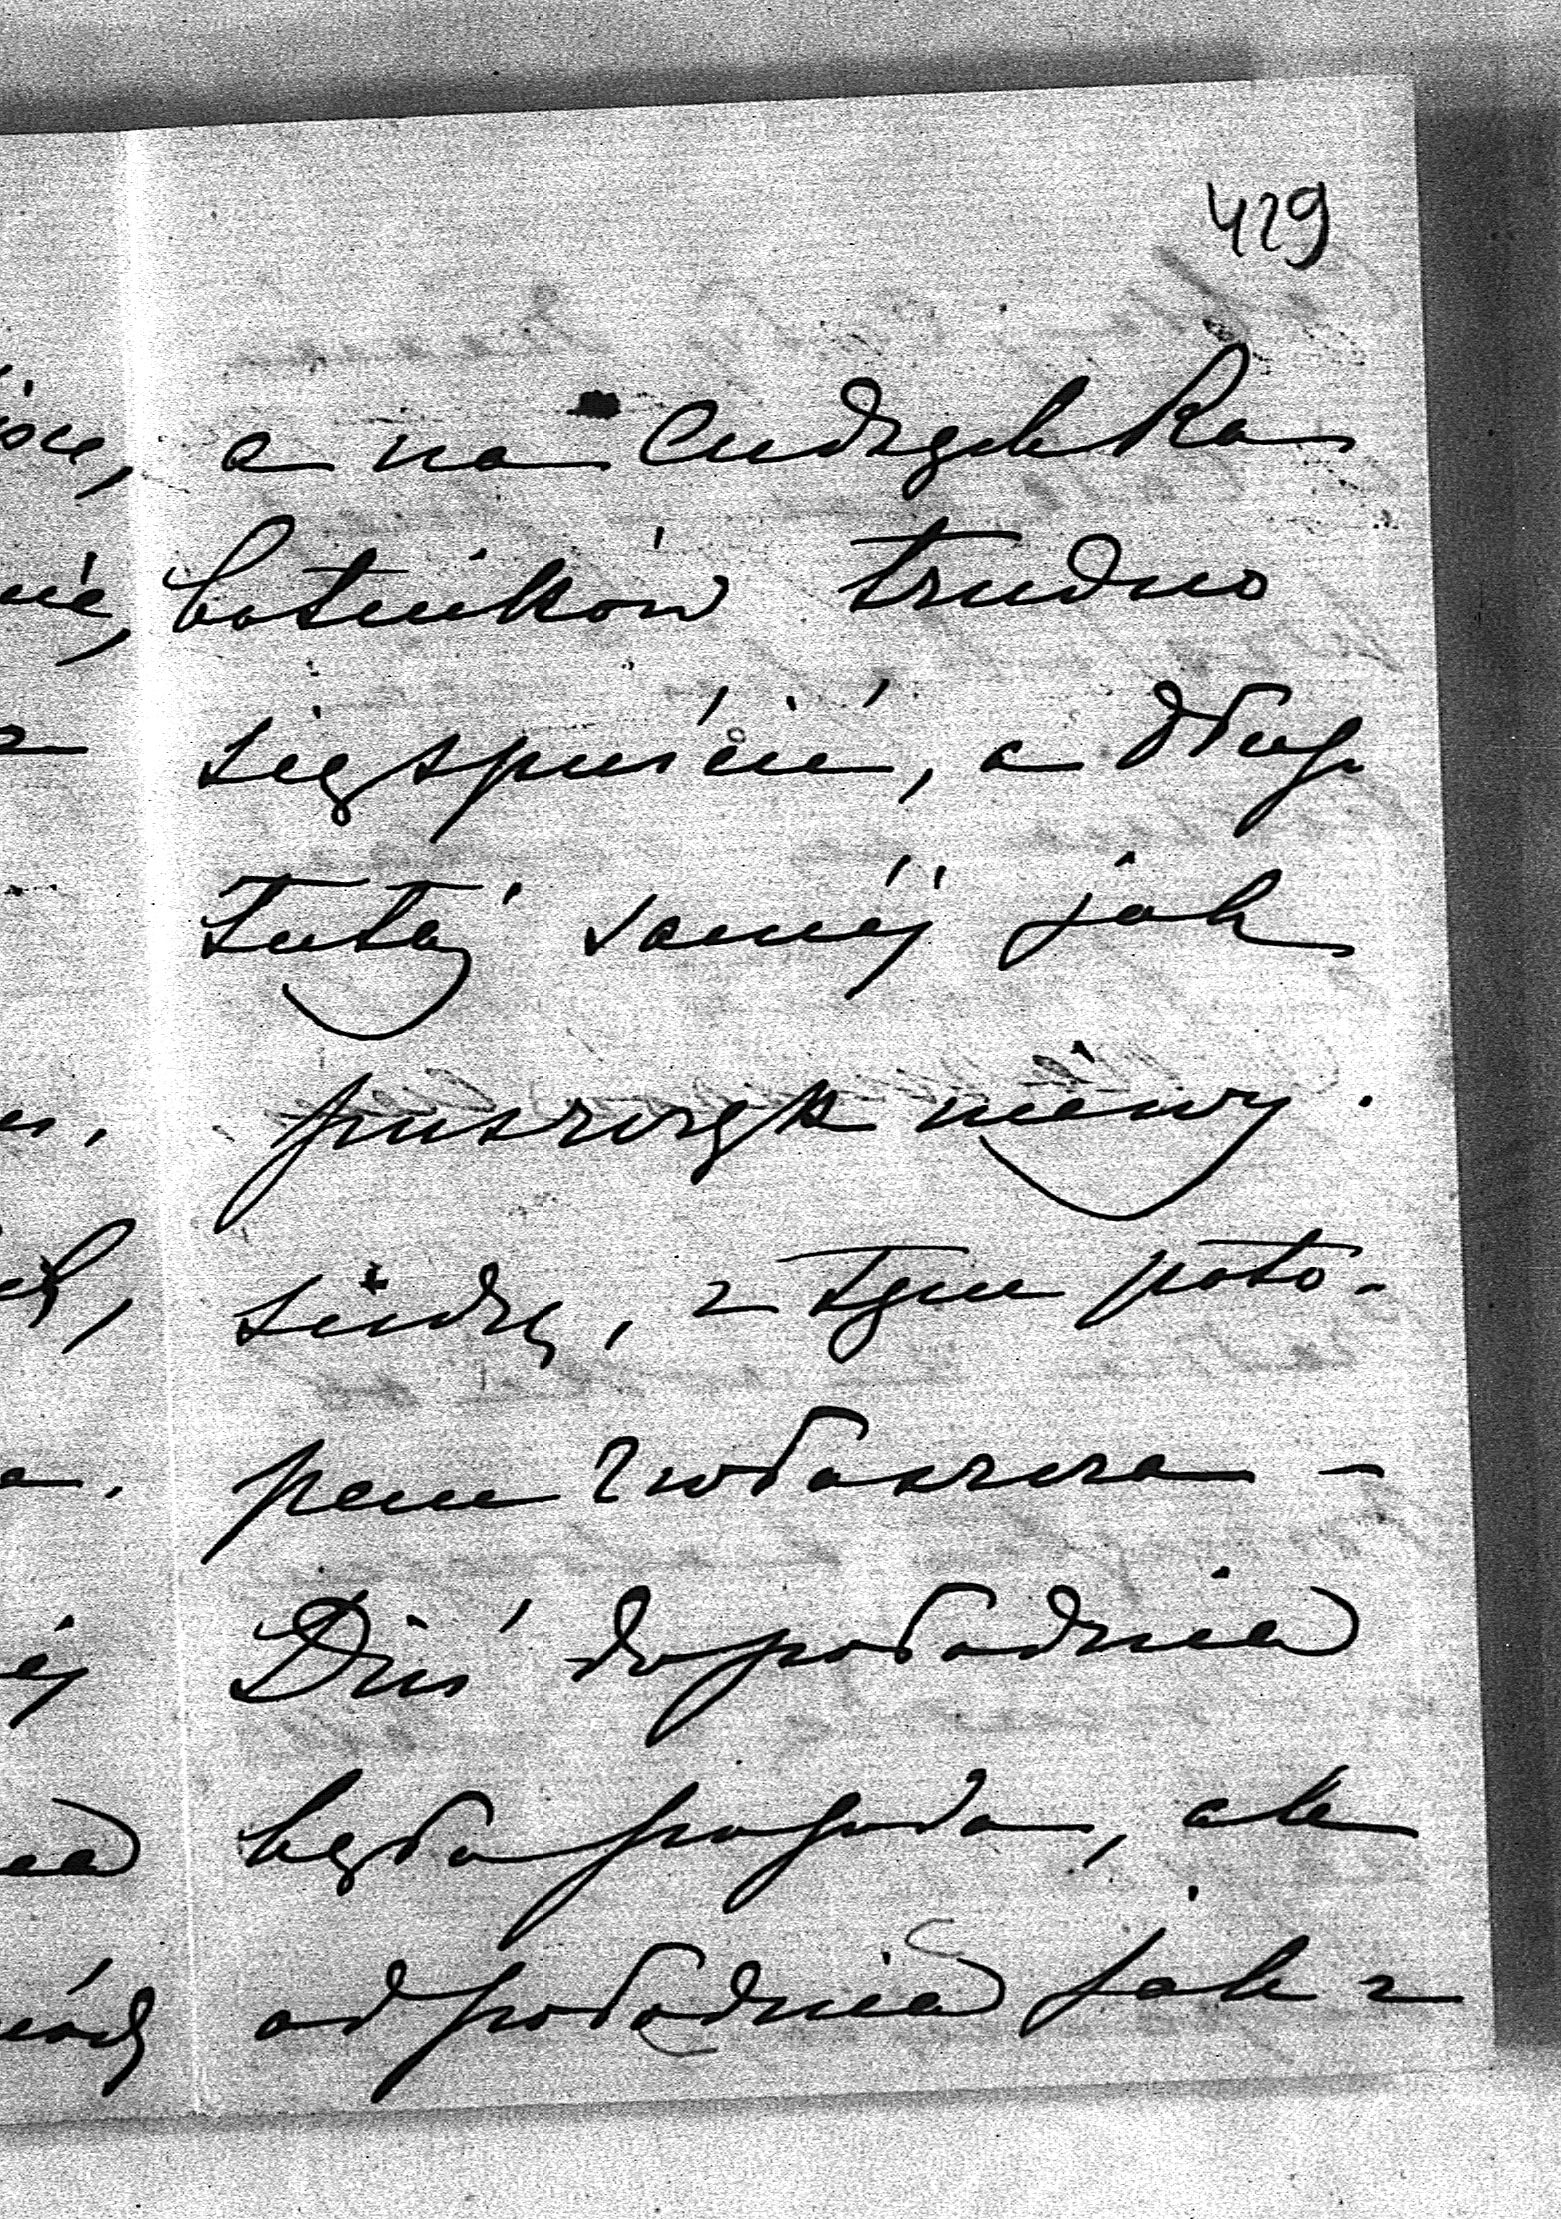 429
a na Cudzych Ka
botników trudno
się spuścić, a długo
tutaj samej jak
puszczyk niewy.
siedzę, z tym poto-
pem zwłaszcza -
Dziś do południa
była pogoda, ale
od południa jak z